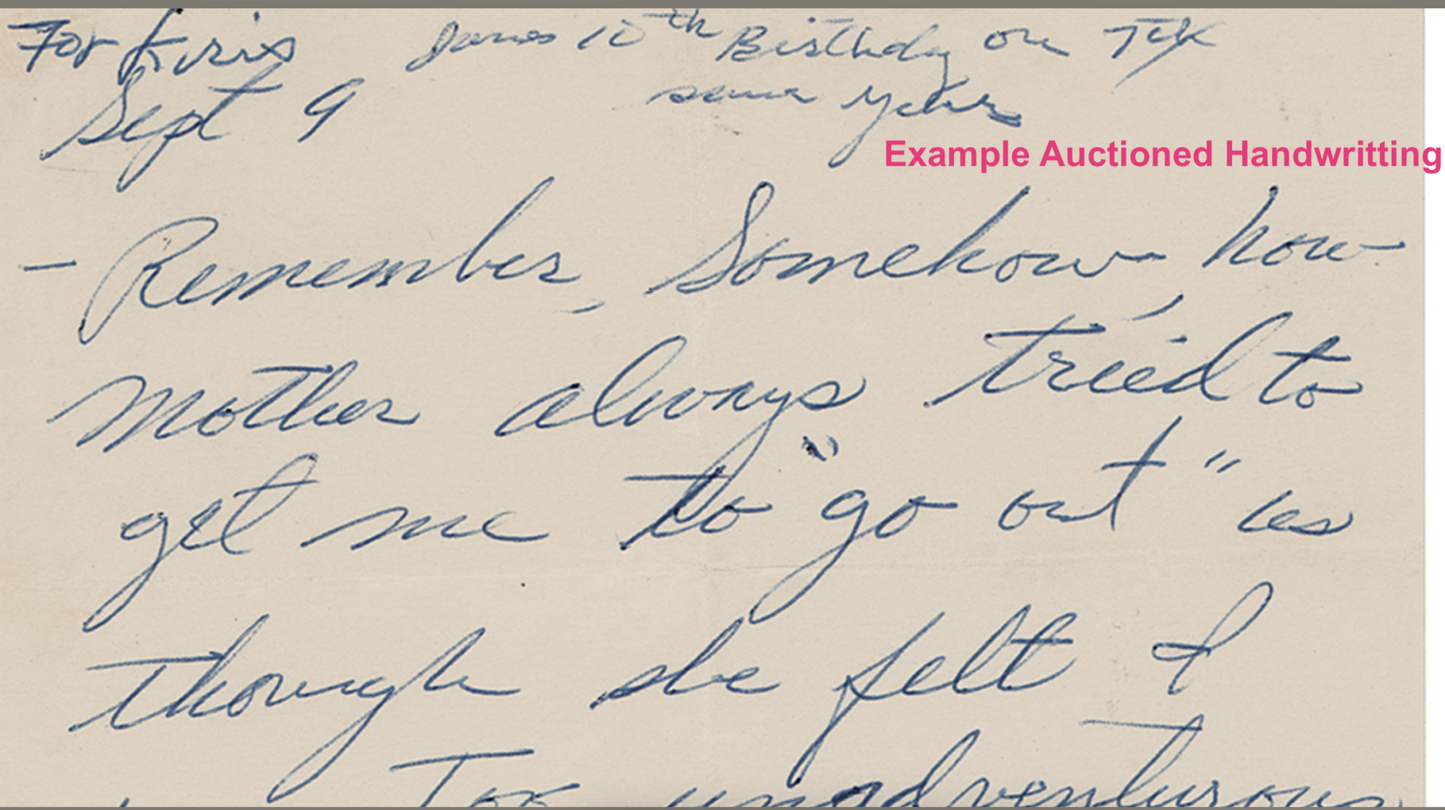 For Kris
Sept 9
10th Birthday on
same year
Example Auctioned Handwritting
- Remember, Somehow, how
mother always tried to
get me to "go out" as
though she felt I
Too unadventurous